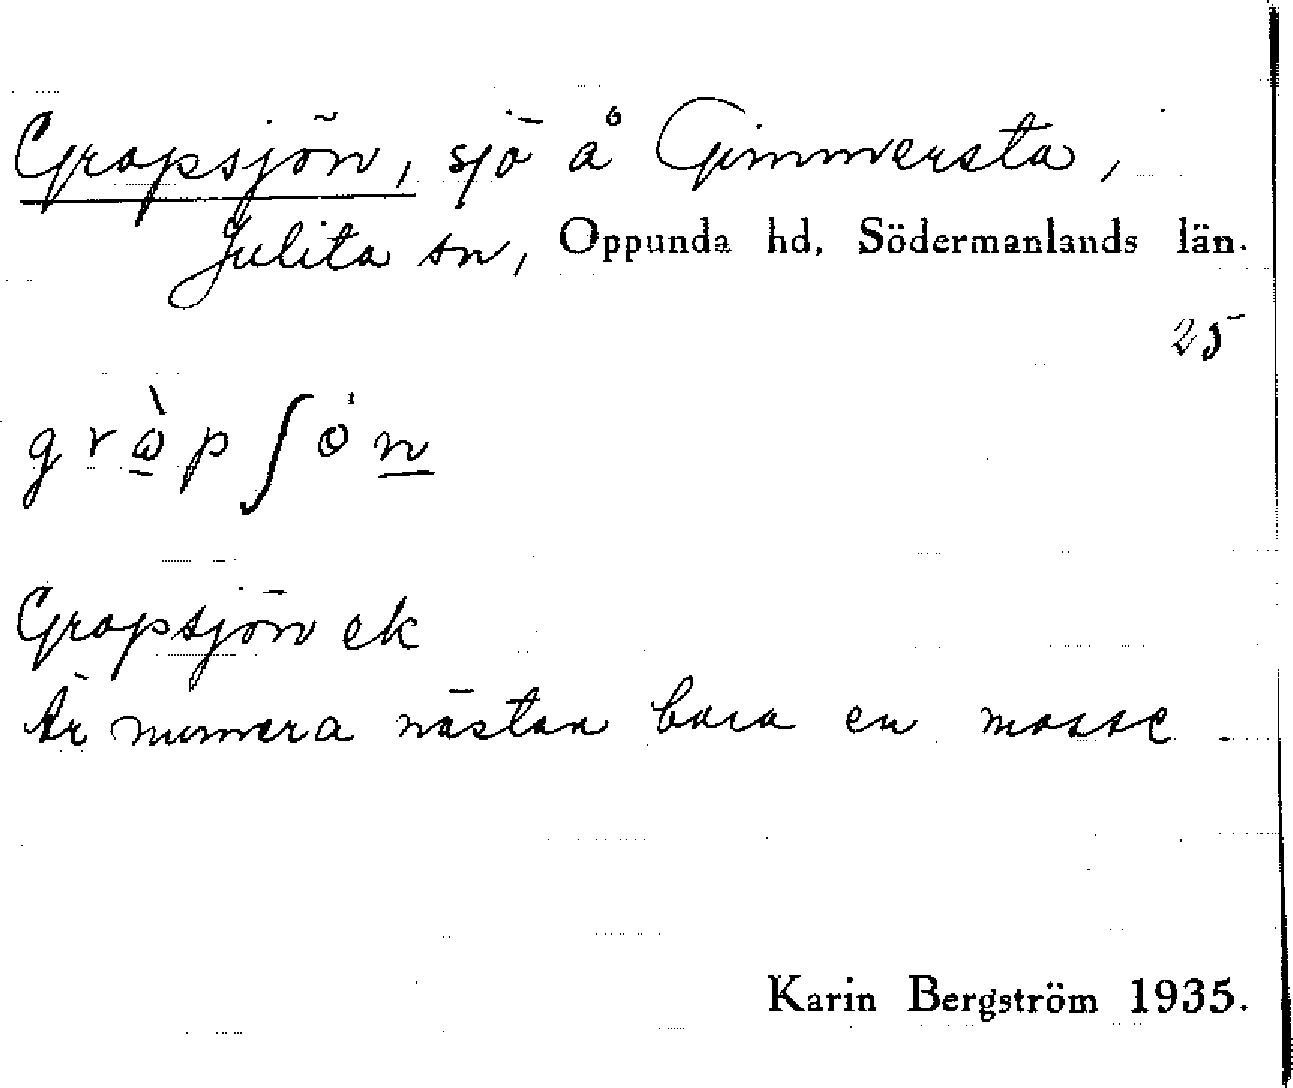 Gropsjön, sjö å Gimmersta,
Julita sn, Oppunda hd, Södermanlands län.
25
grὼpʃön
Gropsjön ek
Är numera nästan bara en mosse.
Karin Bergström 1935.